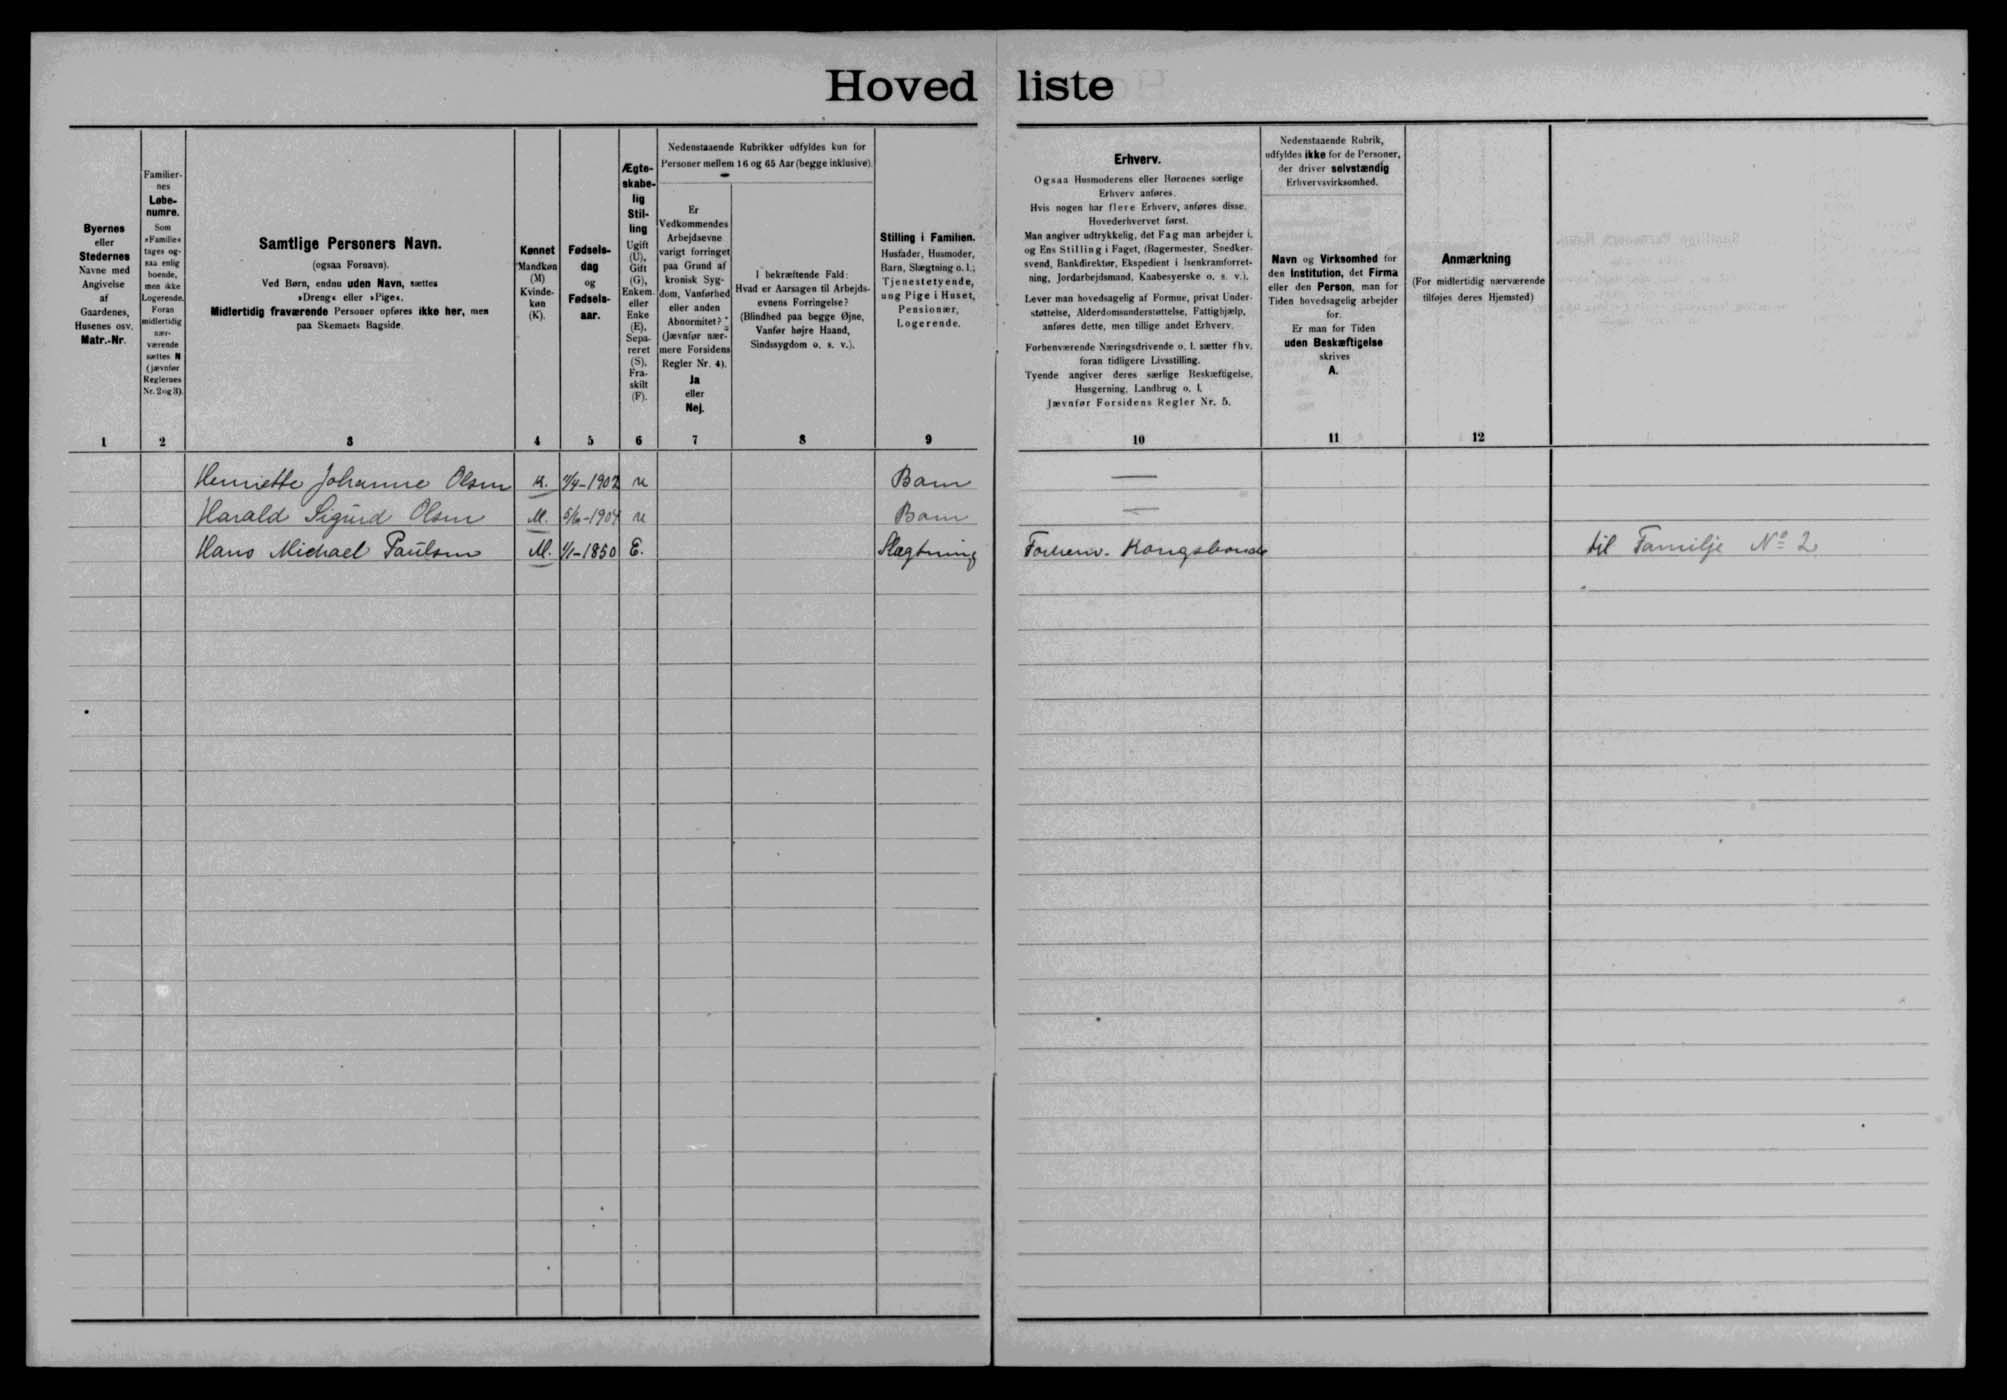 Hovedliste
Byernes
eller
Stedernes
Navne med
Angivelse
af
Gaardenes,
Husenes osv.
Matr.-Nr.
Familier-
nes
Løbe-
numre.
Som
»Familie«
tages og-
saa enlig
boende,
men ikke
Logerende.
Foran
midlertidig
nær-
værende
sættes N
(jævnfør
Reglernes
Nr. 2 og 3).
Samtlige Personers Navn.
(ogsaa Fornavn).
Ved Børn, endnu uden Navn, sættes
»Dreng« eller »Pige«.
Midlertidig fraværende Personer opføres ikke her, men
paa Skemaets Bagside.
Kønnet
Mandkøn
(M)
Kvinde-
køn
(K).
Fødsels-
dag
og
Fødsels-
aar.
Ægte-
skabe-
lig
Stil-
ling
Ugift
(U),
Gift
(G),
Enkem.
eller
Enke
(E),
Sepa-
reret
(S),
Fra-
skilt
(F).
Nedenstaaende Rubrikker udfyldes kun for
Personer mellem 16 og 65 Aar (begge inklusive).
Er
Vedkommendes
Arbejdsevne
varigt forringet
paa Grund af
kronisk Syg-
dom, Vanførhed
eller anden
Abnormitet?
(Jævnfør nær-
mere Forsidens
Regler Nr. 4).
Ja
eller
Nej.
I bekræftende Fald:
Hvad er Aarsagen til Arbejds-
evnens Forringelse?
(Blindhed paa begge Øjne,
Vanfør højre Haand,
Sindssygdom o. s. v.).
Stilling i Familien.
Husfader, Husmoder,
Barn, Slægtning o. l.;
Tjenestetyende,
ung Pige i Huset,
Pensionær,
Logerende.
Erhverv.
Ogsaa Husmoderens eller Børnenes særlige
Erhverv anføres.
Hvis nogen har flere Erhverv, anføres disse.
Hovederhvervet først.
Man angiver udtrykkelig, det Fag man arbejder i,
og Ens Stilling i Faget, (Bagermester, Snedker-
svend, Bankdirektør, Ekspedient i Isenkramforret-
ning, Jordarbejdsmand, Kaabesyerske o. s. v.).
Lever man hovedsagelig af Formue, privat Under-
støttelse, Alderdomsunderstøttelse, Fattighjælp,
anføres dette, men tillige andet Erhverv.
Forhenværende Næringsdrivende o. l. sætter fhv.
foran tidligere Livsstilling.
Tyende angiver deres særlige Beskæftigelse,
Husgerning, Landbrug o. l.
Jævnfør Forsidens Regler Nr. 5.
Nedenstaaende Rubrik,
udfyldes ikke for de Personer,
der driver selvstændig
Erhvervsvirksomhed.
Navn og Virksomhed for
den Institution, det Firma
eller den Person, man for
Tiden hovedsagelig arbejder
for.
Er man for Tiden
uden Beskæftigelse
skrives
A.
Anmærkning
(For midlertidig nærværende
tilføjes deres Hjemsted)
1 2 3 4 5 6 7 8 9 10 11 12
Henriette Johanne Olsen K. /4-1902 u Barn —
Harald Sigurd Olsen M. 1904 u Barn —
Hans Michael Paulsen M. 1/1-1850 E. Slægtning Forhenv. Kongsbonde til Familje No 2